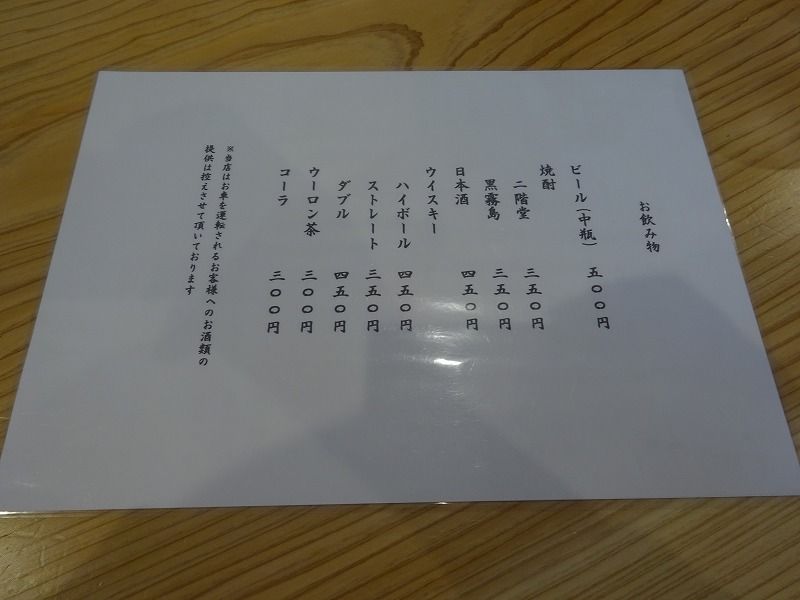 お飲み物
ビール(中瓶) 五〇〇円
焼酎
二階堂 三五〇円
黒霧島 三五〇円
日本酒 四五〇円
ウイスキー
ハイボール 四五〇円
ストレート 三五〇円
ダブル 四五〇円
ウーロン茶 三〇〇円
コーラ 三〇〇円
※当店はお車を運転されるお客様へのお酒類の
提供は控えさせて頂いております